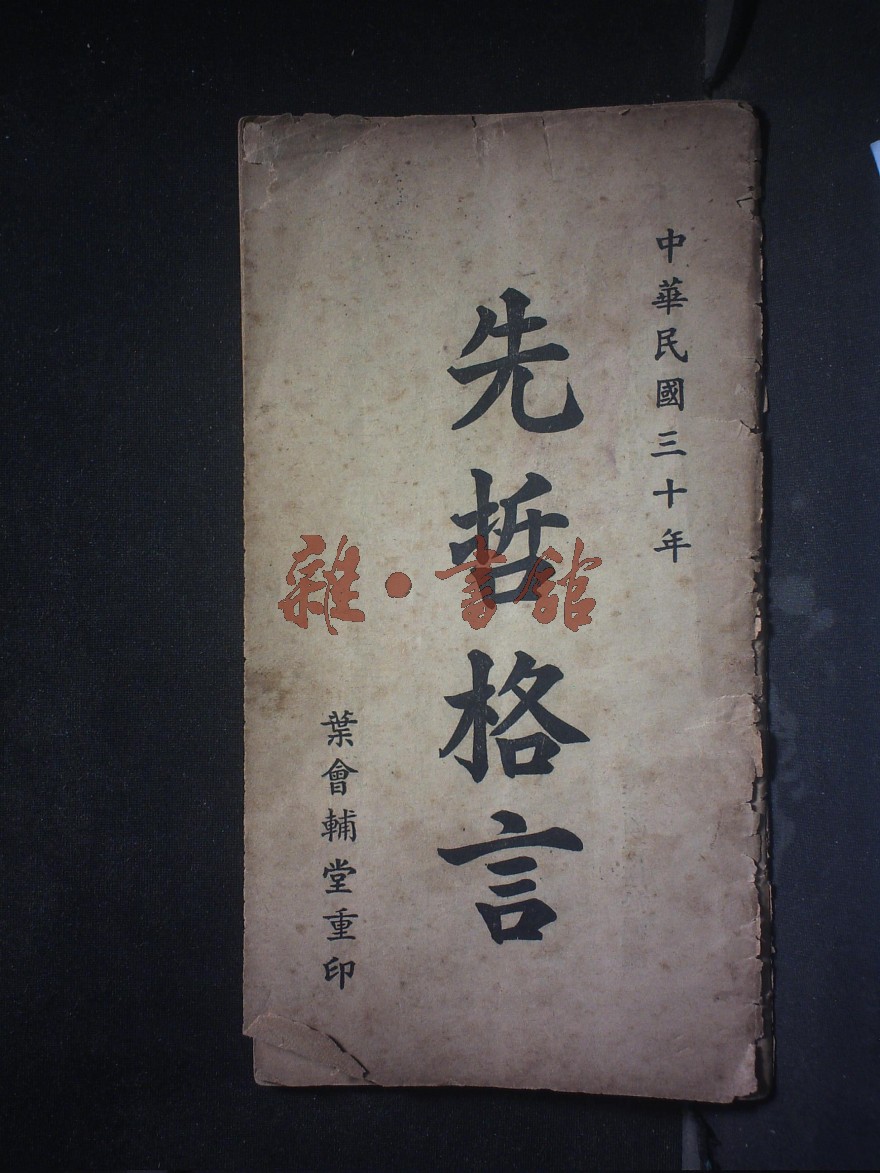 中華民國三十年
先哲格言
葉會輔堂重印
雜·書館